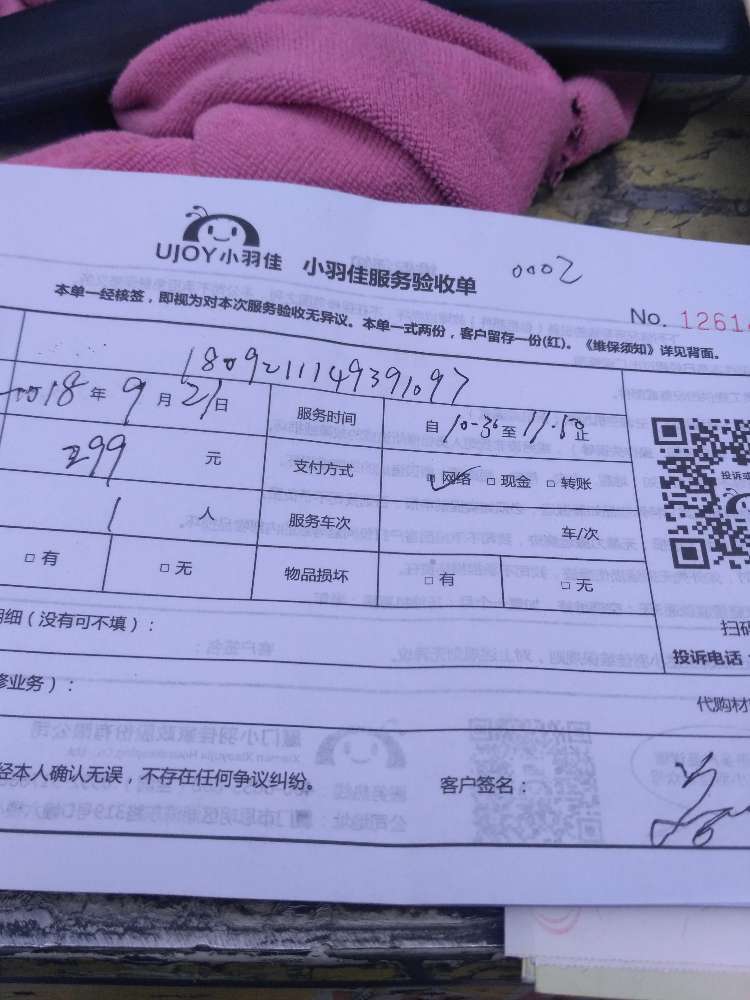 UJOY小羽佳 小羽佳服务验收单 0002
No. 1261
本单一经核签，即视为对本次服务验收无异议。本单一式两份，客户留存一份(红)。《维保须知》详见背面。
1809211149391097
2018年9月21日 服务时间 自10-30至11.50止
299元 支付方式 网络 □现金 □转账
1人 服务车次 车/次
□有 □无 物品损坏 □有 □无
明细（没有可不填）：
扫码
投诉电话：
修业务）：
代购材
经本人确认无误，不存在任何争议纠纷。 客户签名：